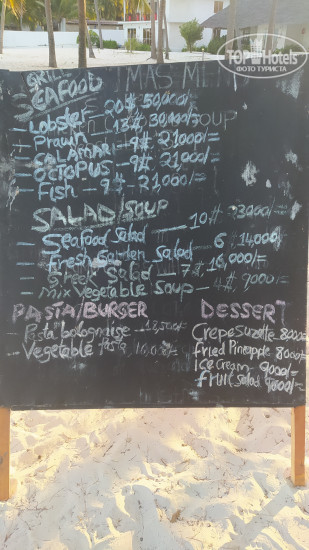 TOPHOTELS
ФОТО ТУРИСТА
GRILL
SEAFOOD
MAS MENU
SOUP
- Lobster - 20$ 50,000/=
+ Prawn - 13$ 30,000/=
- CALAMARI - 9$ 21000/=
- OCTOPUS - 9$ - 21000/=
- Fish - 9$ - 21,000/=
SALAD/SOUP
- Seafood Salad - 10$ 23000/=
- Fresh Garden Salad - 6$ 14,000/=
- Greek Salad - 7$ 16,000/=
- Mix Vegetable Soup - 4$ 9000/=
PASTA/BURGER
- Pasta bolognaise - 12,500/=
- Vegetable Pasta 10,000/=
DESSERT
Crepe Suzette 8000/=
fried Pineapple 8000/=
ICE Cream 9000/=
fruit Salad